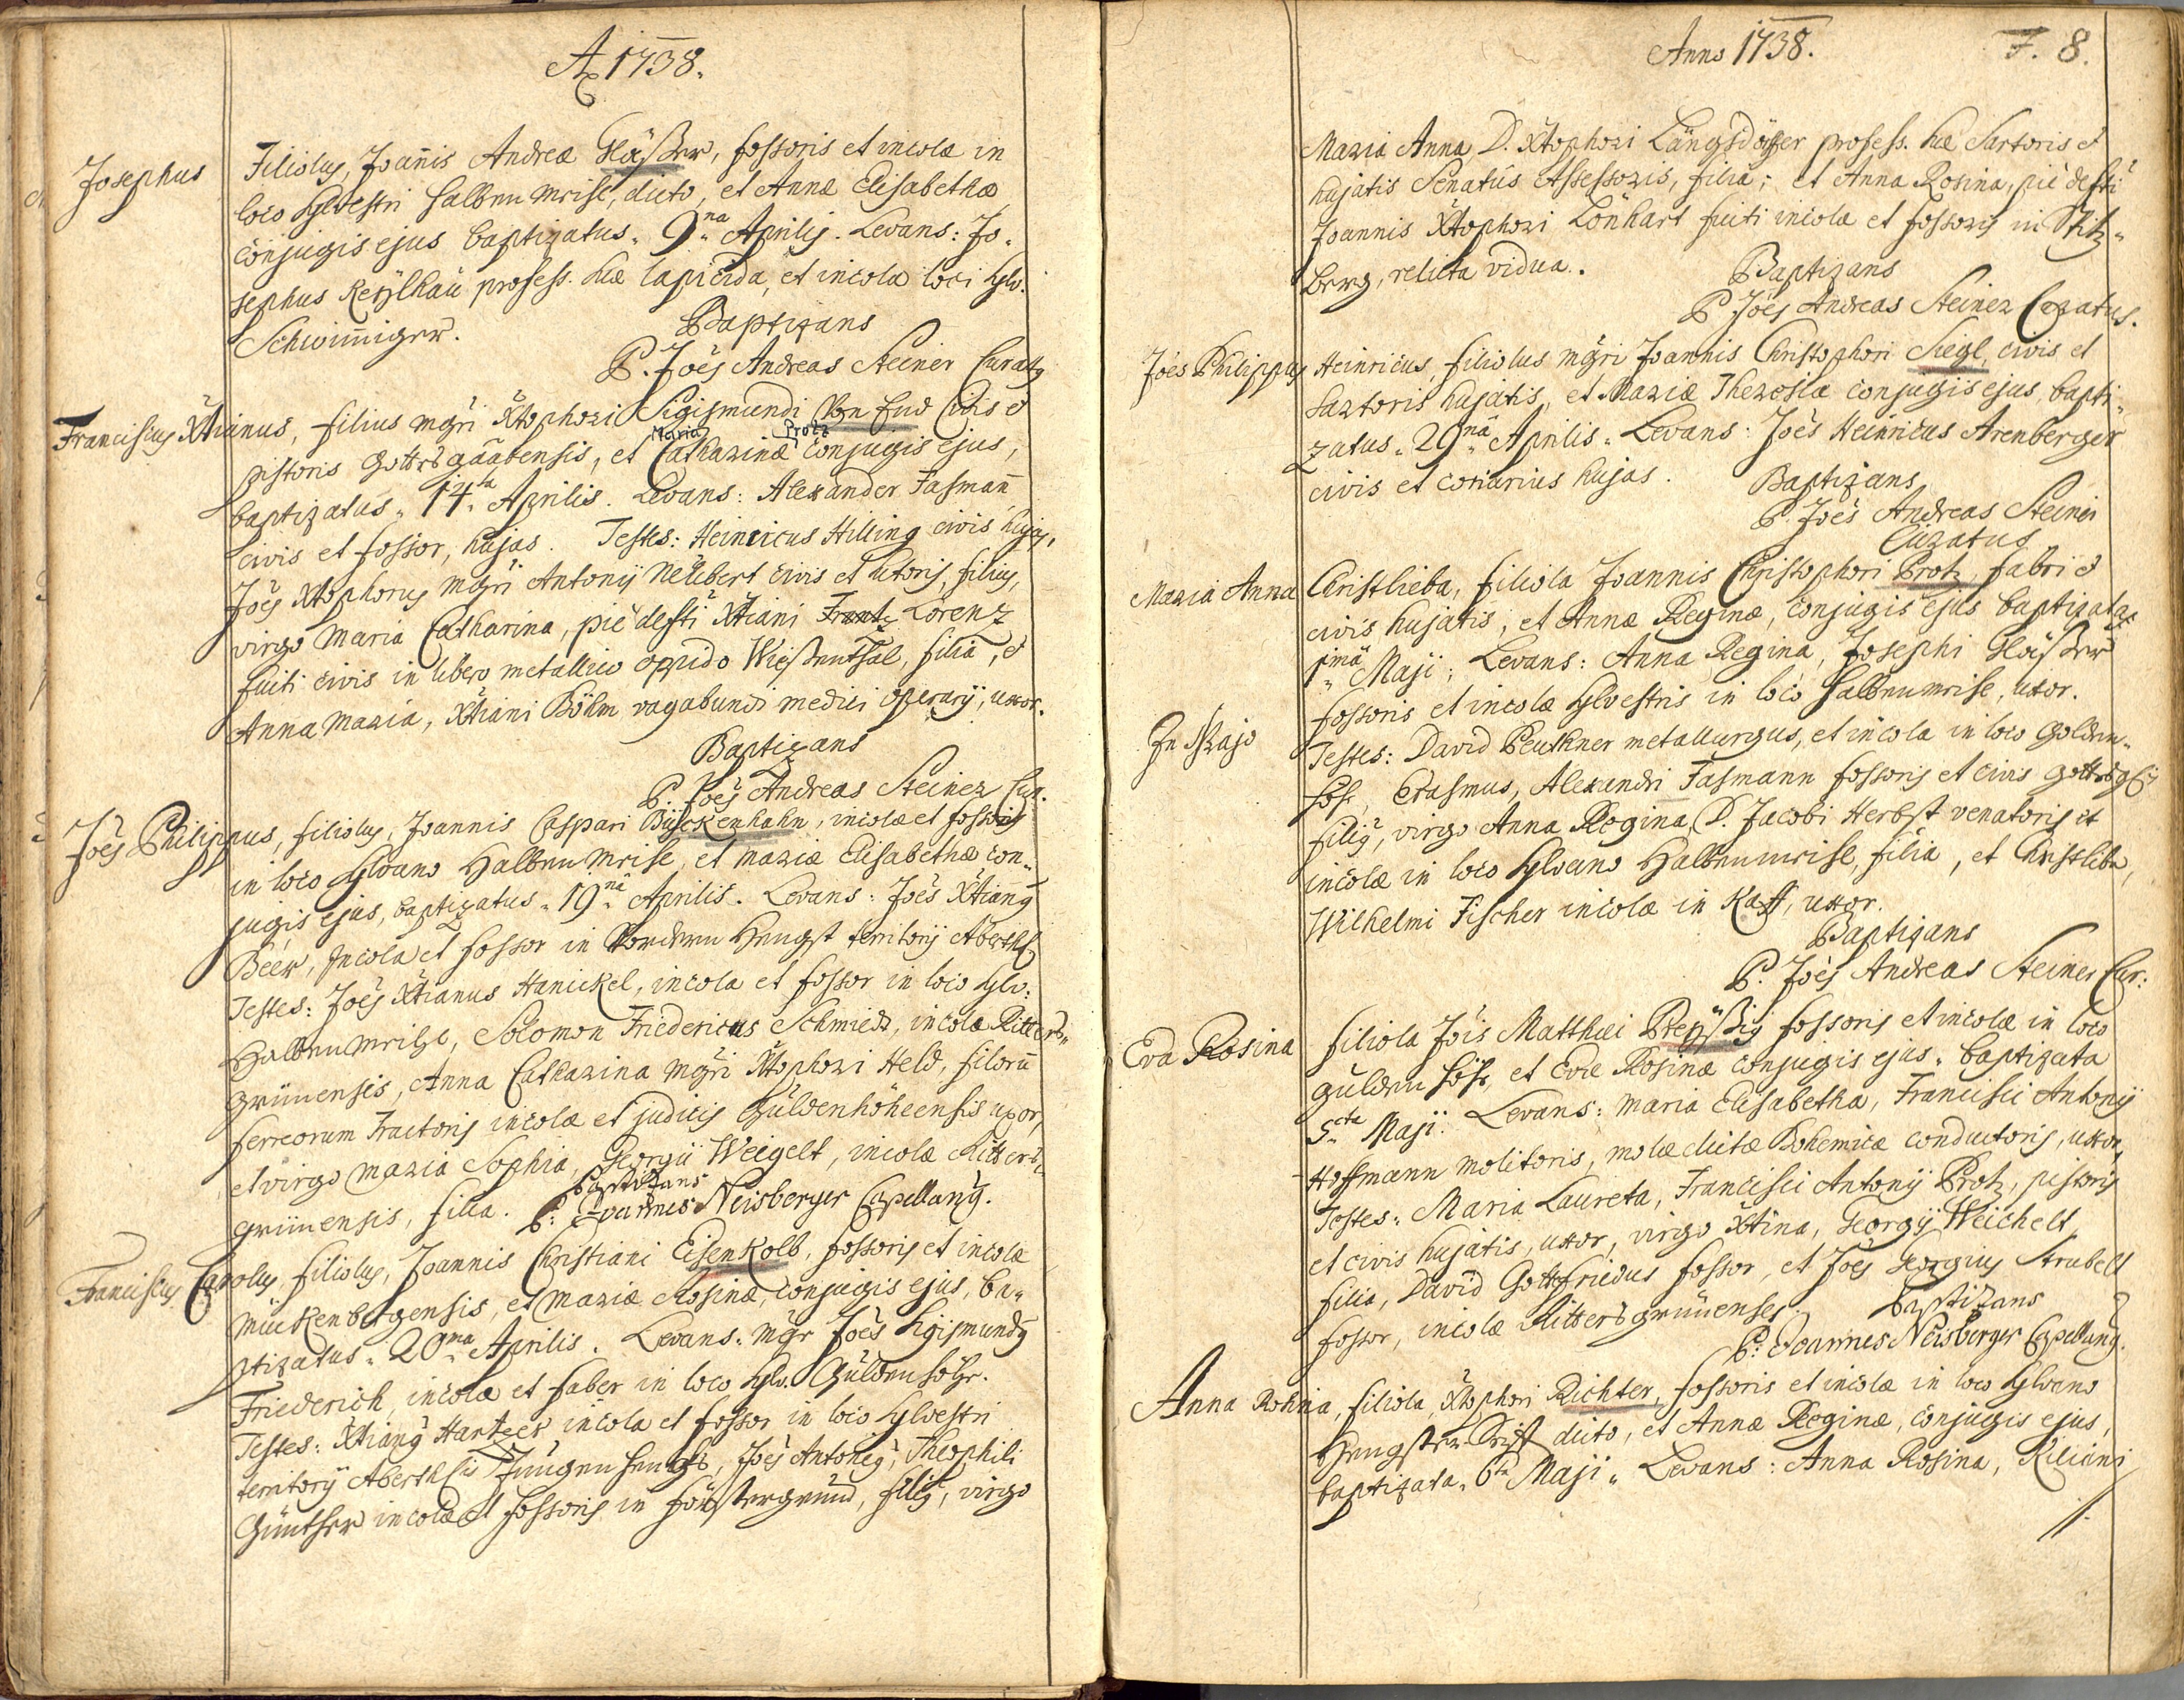 Ao 1738.
Josephus Filiolus, Joañis Andreæ Gläßer, fossoris et incolæ in
loco sylvestri Halbenmeile, dicto, et Annæ Elisabethæ
conjugis ejus baptizatus. 9na Aprilis. Levans: Jo-
sephus Keÿlhaü profess. suæ lapicida, et incola loci sylv.
Schwim̃iger. Baptizans
P. Joẽs Andreas Steiner Curatus
Franciscus Xtianus, filius mgri Xtophori Sigismundi Von End Civis et
Maria Protz
pistoris Gottesgaabensis, et Catharinæ conjugis ejus,
baptizatus. 14ta Aprilis. Levans: Alexander Fasmañ
civis et fossor, hujas. Testes: Heinricus Hilling civis hujas,
Joẽs Xtophorus mgri Antonÿ Neübert civis et sutoris, filius,
virgo Maria Catharina, piè defti Xtiani Lorenz
fuiti civis in libero metallico oppido Wießenthal, filia, et
Anna Maria, Xtiani Böhm vagabundi medici operarÿ, uxor.
Baptizans
P. Joẽs Andreas Steiner Cur.
Joẽs Philippus, filiolus, Joannis Caspari Bÿsckenhahn, incolæ et fossoris
in loco sylvano Halbenmeile, et Mariæ Elisabethæ con-
jugis ejus, baptizatus. 19na Aprilis. Levans: Joẽs Xtianus
Beer, Incola et fossor in Vordern Hengst territorÿ Aberth.
Testes: Joẽs Xtianus Hanickel, incola et fossor in loco sylv:
Halbenmeile, Solomon Friedericus Schmiedt, incola Ritters-
grünensis, Anna Catharina mgri Xtophori Held, filorũ
ferreorum Tractoris incolæ et judicis Güldenhöheensis uxor,
et virgo Maria Sophia, Georgii Weigelt, incolæ Ritters-
grünensis, filia. Baptizans
P: Joannes Neisberger Capellanus.
Franciscus Carolus, filiolus, Joannis Christiani Eisenkolb, fossoris et incolæ
Mückenbergensis, et Mariæ Rosinæ, conjugis ejus, ba-
ptizatus. 20ma Aprilis. Levans: Mgr Joẽs Sigismundus
Friederich, incola et faber in loco sylv. Güldenhöhe.
Testes: Xtianus Hartzer incola et fossor in loco sylvestri
territorÿ Aberthsis Jüngen hengst, Joẽs Antonius, Theophili
Günther incolæ et fossoris in Förstergrund, filius, virgo
Anno 1738. F. 8.
Maria Anna D. Xtophori Längsdörffer profess. suæ Sartoris et
hujatis Senatûs Assessoris, filia; et Anna Rosina, piè defti
Joannis Xtophori Lönhart fuiti incolæ et fossoris in Stitz-
berg, relicta vidua. Baptizans
P. Joẽs Andreas Steiner Curatus.
Joẽs Philippus Heinricus, filiolus mgri Joannis Christophori Siegl, civis et
sartoris hujatis, et Mariæ Theresiæ conjugis ejus, bapti-
zatus. 29nâ Aprilis. Levans: Joẽs Heinricus Arenberger
civis et coriarius hujas. Baptizans
P. Joẽs Andreas Steiner
Curatus
Maria Anna Christlieba, filiola Joannis Christophori Protz, fabri et
civis hujatis, et Annæ Reginæ, conjugis ejus baptizata
1mâ Maji. Levans: Anna Regina, Josephi Gläßer
fossoris et incolæ sylvestris in loco Halbenmeile, uxor.
In Majo
Testes: David Peukner metallurgus, et incola in loco Golden-
höhe, Erasmus, Alexandri Fasmann fossoris et civis
filius, virgo Anna Regina, D. Jacobi Herbst venatoris et
incolæ in loco sylvano Halbenmeile, filia, et Christlieba,
Wilhelmi Fischer incolæ in Kaff, uxor.
Baptizans
P. Joẽs Andreas Steiner Cur:
Eva Rosina filiola Jõis Matthæi Preÿßig fossoris et incolæ in loco
guldenhöhe, et Evæ Rosinæ conjugis ejus. baptizata
5cta Maji. Levans: Maria Elisabetha, Francisci Antonÿ
Hoffmann molitoris, molæ dictæ Bohemicæ conductoris, uxor,
Testes: Maria Laureta, Francisci Antonÿ Protz, pistoris
et civis hujatis, uxor, virgo Xtina, Georgÿ Weichelt,
filia, David Gottfriedus fossor, et Joẽs Georgius Strubelt
fossor, incolæ Rittersgrünenses. Baptizans
P: Joannes Neisberger Capellanus.
Anna Rosina, filiola, Xtophori Richter, fossoris et incolæ in loco sylvano
Hengster-Erbst dicto, et Annæ Reginæ, conjugis ejus,
baptizata. 6ta Maji. Levans: Anna Rosina, Kiliani